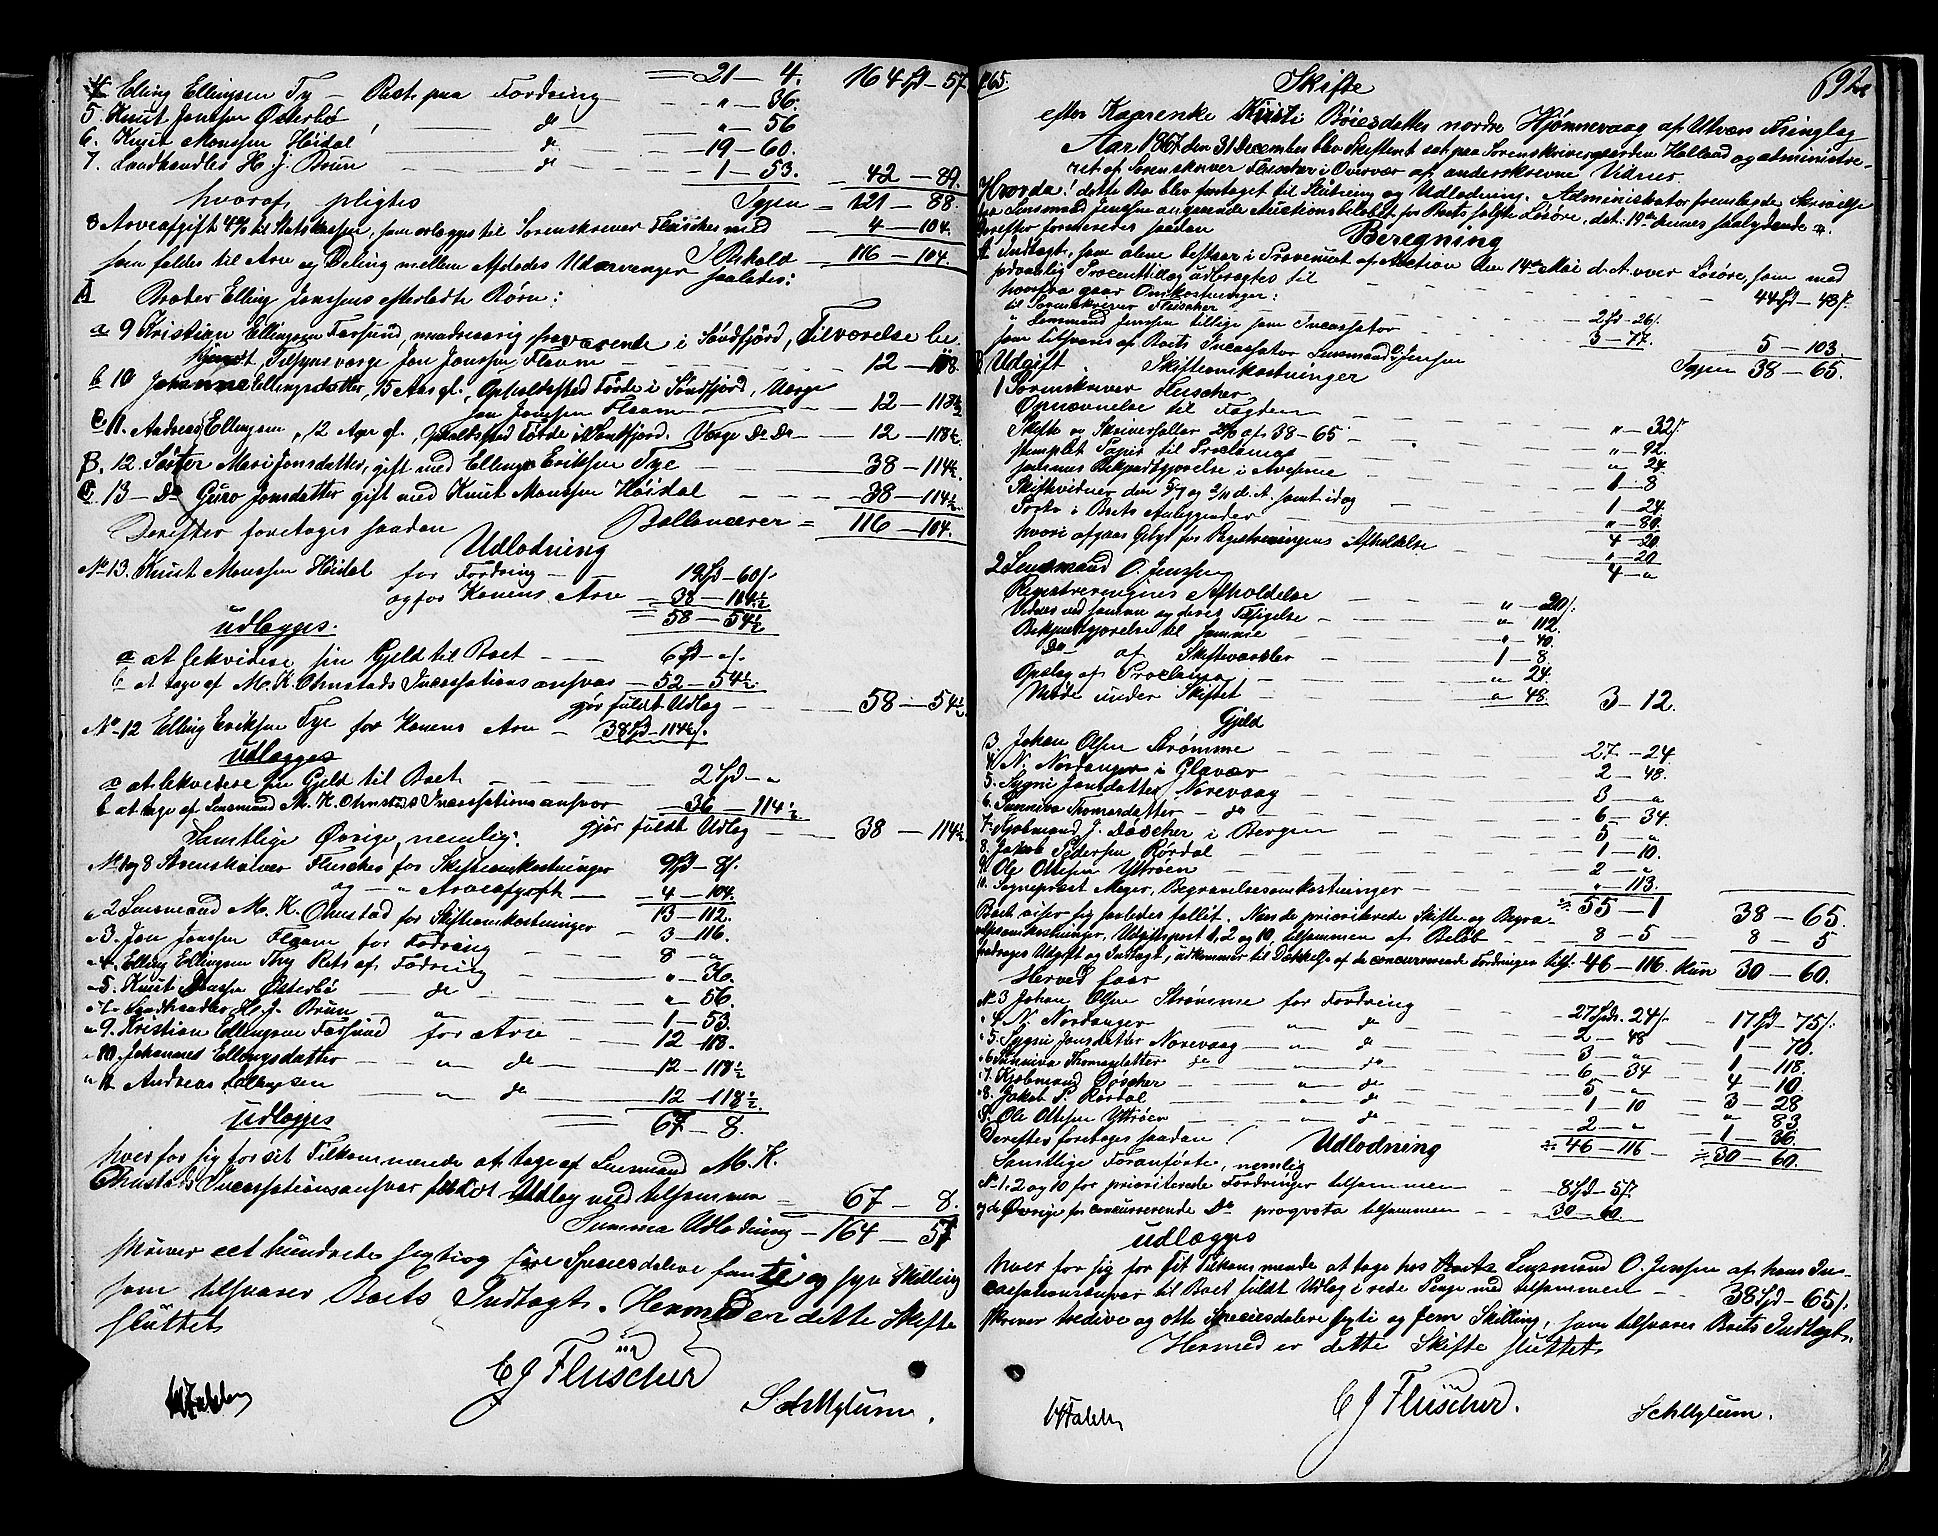 = 21 – 4. 164 Spd – 57.
4 Elling Ellingsen Ty – Rest paa Fordring – „ – 36.
5. Knut Jonssen Østerbø – do – „ – 56
6. Knut Monssen Høidal – do – 19 – 60.
7. Landhandler H. J. Brun – do – 1 – 53. 42 – 89.
hvoraf pligtes Igjen = 121 – 88.
8 Arveafgift 4% til Statskassen, som erlægges til Sorenskriver Flüscher med – 4 – 104.
I Behold – 116 – 104.
som falder til Arv og Deling mellem Afdødes Udarvinger saaledes:
A Broder Elling Jonssens efterladte Børn:
a 9 Kristian Ellingsen Farsund, mindreaarig fraværende i Søndfjord, Tilværelse be-
kjendt. Tilsynsværge Jon Jonssen Flaam – 12 – 118.
b 10 Johanne Ellingsdatter, 15 Aar gl., Opholdssted Førde i Søndfjord, Værge
Jon Jonssen Flaam – 12 – 118½
c 11. Andreas Ellingsen, 12 Aar gl., Opholdssted Førde i Søndfjord. Værge Do Do – 12 – 118½.
B. 12. Søster Mari Jonsdatter, gift med Elling Eriksen Tye – 38 – 114½.
C 13 – Do Guro Jonsdatter gift med Knut Monssen Høidal – 38 – 114½.
Derefter foretoges saadan Ballancerer = 116 – 104.
Udlodning
No 13. Knut Monssen Høidal for Fordring – 19 Spd – 60 /.
og for Konens Arv – 38 – 114½
58 – 54½
udlægges.
a at lekvidere sin Gjeld til Boet – 6 Spd – „ /.
b at tage af M. K. Ohnstads Incassationsansvar – 52 – 54½.
gjør fuldt Udlæg – 58 – 54½
No 12 Elling Eriksen Tye for Konens Arv – 38 Spd – 114½ /.
udlægges
a at lekvidere sin Gjeld til Boet – 2 Spd – „
b at tage af Lensmand M. K. Ohnstads Incassationsansvar – 36 – 114½
gjør fuldt Udlæg – 38 – 114½
Samtlige Øvrige, nemlig:
No 1 og 8 Sorenskriver Flüscher for Skifteomkostninger 9 Spd – 8 /.
og – „ Arveafgift – 4 – 104.
13 – 112.
„ 2 Lensmand M. K. Ohnstad for Skifteomkostninger – 3 – 116.
„ 3. Jon Jonssen Flaam for Fordring – 8 – „
„ 4. Elling Ellingsen Thy Rets af Fodring – „ – 36.
„ 5. Knut Jonssen Østerbø – do – „ – 56.
„ 7 Landhandler H. J. Brun „ – 1 – 53.
„ 9. Kristian Ellingsen Farsund for Arv – 12 – 118.
„ 10. Johannes Ellingsdatter – „ do – 12 – 118½
„ 11 Andreas Ellingsen – „ do – 12 – 118½.
udlægges = 67 – 8.
hver for sig for sit Tilkommende at tage af Lensmand M. K.
Ohnstads Incassationsansvar fuldt Udlæg med tilsammen = 67 – 8.
Summa Udlodning – 164 – 57
skriver eet hundrede sextiog fire Speciesdalere femti og syv Skilling
som tilsvarer Boets Indtægt. Hermed er dette Skifte
sluttet
C J Flüscher
S. A. Mylum.
865. Skifte 692.
efter Kaarenke Kirsti Bøiesdatter nordre Hjønnevaag af Utvær Thinglag
Aar 1867 den 31 December blev Skifteret sat paa Sorenskrivergaarden Holland og administre-
ret af Sorenskriver Flüscher i Overvær af underskrevne Vidner.
Hvorda! dette Bo blev foretaget til Slutning og Udlodning. Administrator fremlagde Skrivelse
fra Lensmand Jenssen angaaende Auctionsbeløbet for Boets solgte Løsøre, det. 19de dennes saalydende.
Derefter formeredes saadan Beregning
A Indtægt, som alene bestaar i Provenuet af Auction den 14de Mai d. A. over Løsøre, som med
paavanlig Procenttillæg udbragtes til – 44 Spd – 48 /.
hvorfra gaar Omkostninger:
til Sorenskriver Flüscher – 2 Spd – 26 /.
„ Lensmand Jenssen tillige som Incassator – 3 – 77. 5 – 103.
som tilsvares af Boets Incassator Lensmand O Jenssen Igjen 38 – 65.
B Udgift. Skifteomkostninger
1 Sorenskriver Flüscher
Opnævnelse til Fogden – „ – 32 /.
Skifte og Skriversalær 2% af 38 – 65 – „ – 92.
stemplet Papir til Proclama – „ – 24
sammes Bekjendtgjørelse i Aviserne – 1 – 8
Skiftevidner den 5/7 og 2/11 d. A. samt idag – 1 – 24.
Porto i Boets Anliggender – „ – 80.
4 – 20.
hvori afgaar Gebyr for Registreringens Afholdelse – „ – 20
4 – „
2 Lensmand O. Jenssen
Registreringens Afholdelse – „ – 20 /.
Vidner ved samme og deres Tilsigelse – „ – 112.
Bekjendtgjørelse til samme – „ – 40.
Do af Skiftevarsler – 1 – 8.
Opslag af Proclama – „ 24.
Møde under Skiftet – „ 48. 3 – 12.
Gjeld
3. Johan Olsen Strømme – 27 – 24
4. N. Nordanger i Glavær – 2 – 48.
5. Sygni Jonsdatter Norevaag – 3 – „
6. Sunniva Thomasdatter – do – 6 – 34.
7. Kjøbmand J. Döscher i Bergen – 5 „
8. Jakob Pedersen Rørdal – 1 – 10.
9. Ole Ottesen Yttrøen – 2 – „
10. Sogneprest Meyer, Begravelsesomkostninger – „ – 113.
55 – 1 38 – 65.
Boet viser sig saaledes fallit. Naar de prioriterede Skifte og Begra-
velsesomkostninger, Udgiftspost 1, 2 og 10, tilsammen af Beløb – 8 – 5 8 – 5
fradrages Udgift og Indtægt, udkommer til Dækkelse af de concurrerende Fordringer 46 – 116. Kun 30 – 60.
Herved faar
No 3 Johan Olsen Strømme for Fordring – 27 Spd. 24 /. – 17 Spd – 75 /.
„ 4 N. Nordanger – „ do – 2 – 48 – 1 – 70.
„ 5. Sygni Jonsdatter Norevaag – „ do – 3 – „ 1 – 118.
„ 6 Sunniva Thomasdatter do „ do – 6 – 34 – 4 – 10.
„ 7. Kjøbmand Döscher – „ do – 5 – „ – 3 – 28
„ 8. Jakob P. Rørdal – „ do – 1 – 10 – „ 83.
„ 9. Ole Ottesen Yttrøen – „ do – 2 – „ – 1 – 36.
46 – 116 – 30 – 60.
Derefter foretoges saadan Udlodning
Samtlige Foranførte, nemlig
No 1. 2 og 10 for prioriterede Fordringer tilsammen – 8 Spd – 5 /.
og de Øvrige for concurrerende Do progvota tilsammen – 30 – 60.
udlægges
hver for sig for sit Tilkommende at tage hos Boets Lensmand O. Jenssen af hans In-
cassationsansvar til Boet fuldt Udlæg i rede Penge med tilsammen – 38 Spd – 65 /.
skriver tredive og otte Speciesdalere sexti og fem Skilling, som tilsvarer Boets Indtægt.
Hermed er dette Skifte sluttet.
C J Flüscher.
S A Mylum.